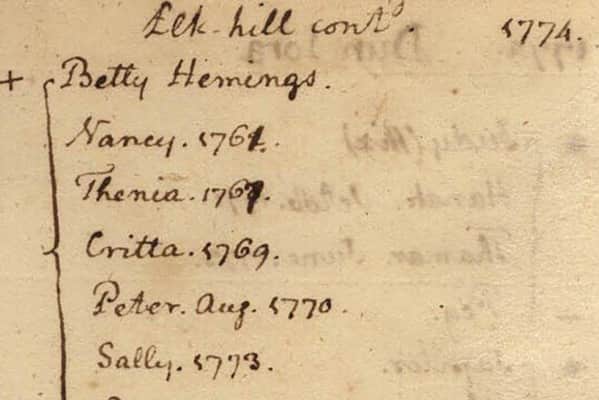 Elk-hill contd. 1774.
+ Betty Hemings.
Nancy. 1761.
Thenia. 1767.
Critta. 1769.
Peter. Aug. 1770.
Sally. 1773.